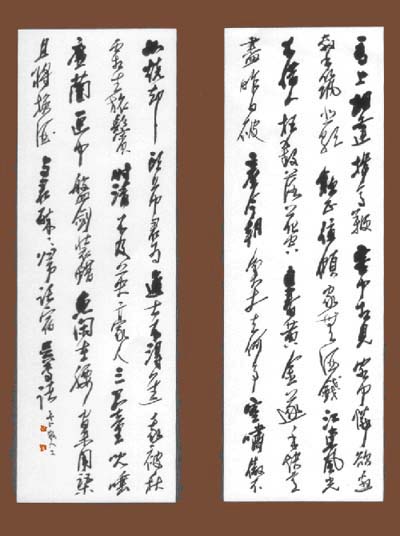 馬上相逢揖馬鞭客中相見客中憐欲邀
擊筑悲歌飲正值傾家無酒錢江東風光
不借人枉殺落花空自春黃金逐手快意
盡昨日破產今朝貧丈夫何事空嘯傲不
如燒却頭上巾君為進士不得進我被秋
霜生旅鬢時清不及英豪人三尺童兒唾
廉藺匣中盤劍裝魚閒在腰間未用渠
且將換酒與君醉醉歸託宿吳專諸